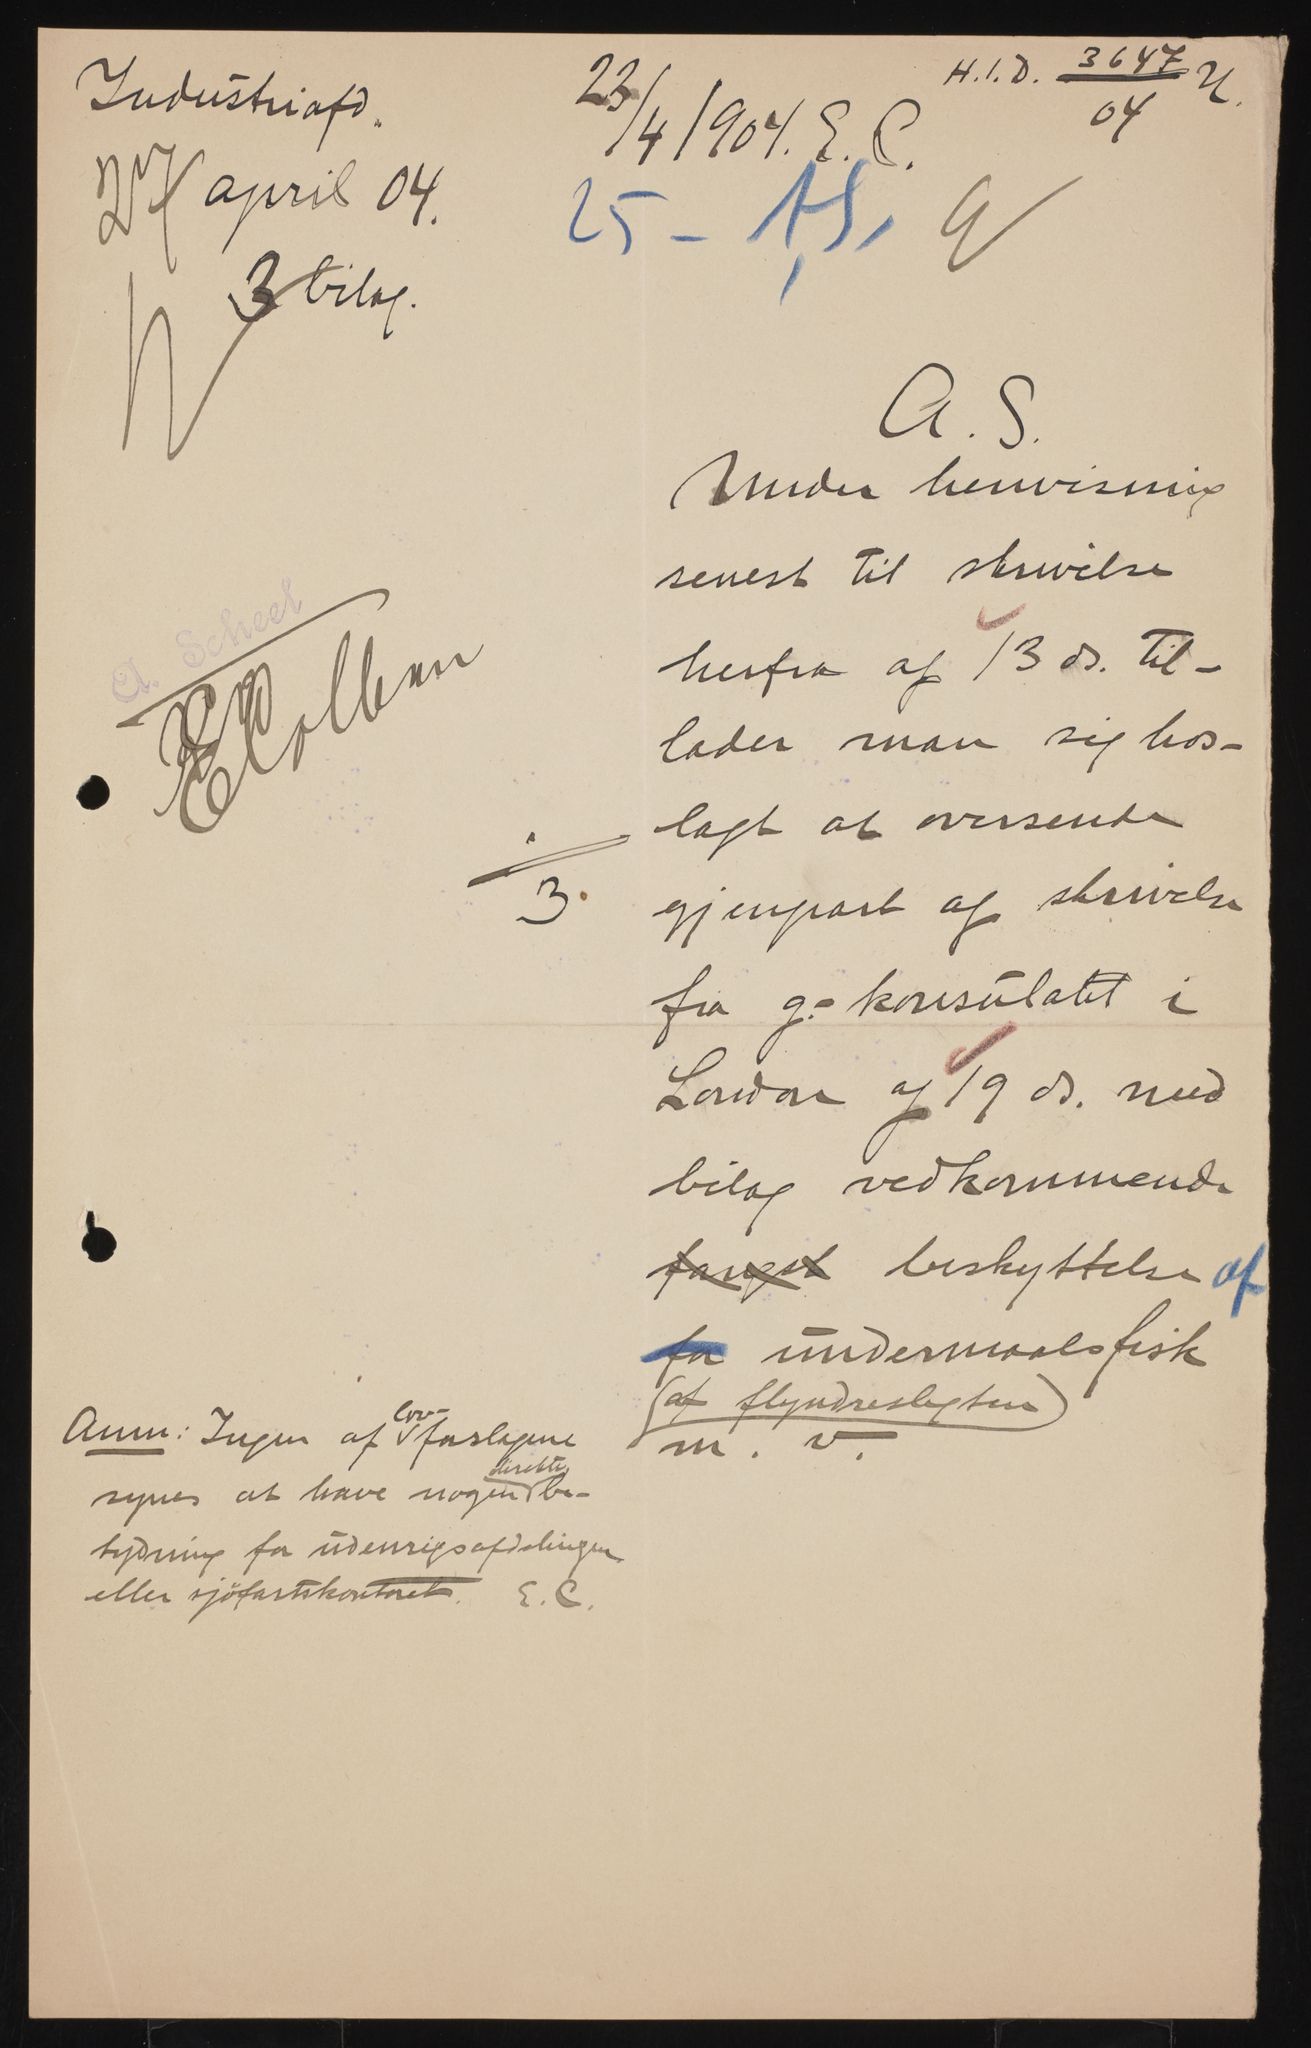 Industriafd.
27/ april 04.
3 bilag.
23/4 1904. E. C.
25 - AS,
H.I.D. 3647/04 U.
A. S.
Under henvisning
senest til skrivelse
herfra af 13 ds. til-
lader man sig hos-
lagt at oversende
gjenpart af skrivelse
fra g.-konsulatet i
London af 19 ds. med
bilag vedkommende
fangst beskyttelse af
for undermaalsfisk
(af flyndreslegten)
m. v.
A. Scheel
E Colban
3
Anm: Ingen af lov-forslagene
synes at have nogen direkte be-
tydning for udenrigsafdelingen
eller sjöfartskontoret. E. C.